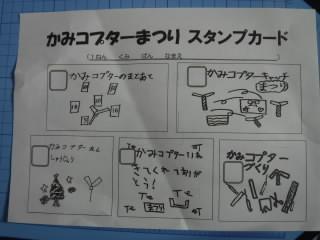 かみコプターまつり スタンプカード
( 1ねん くみ ばん なまえ )
かみコプターのまとあて
10
10
かみコプターキャッチ
まつり
かみコプター
かみコプター
きてくれてありが
とう!
まつり
かみコプター
づくり